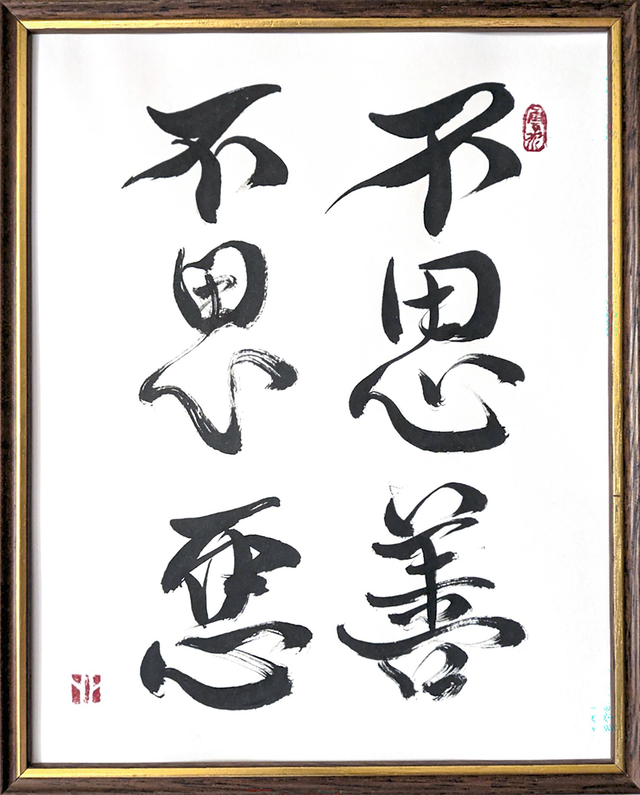 不思善
不思悪